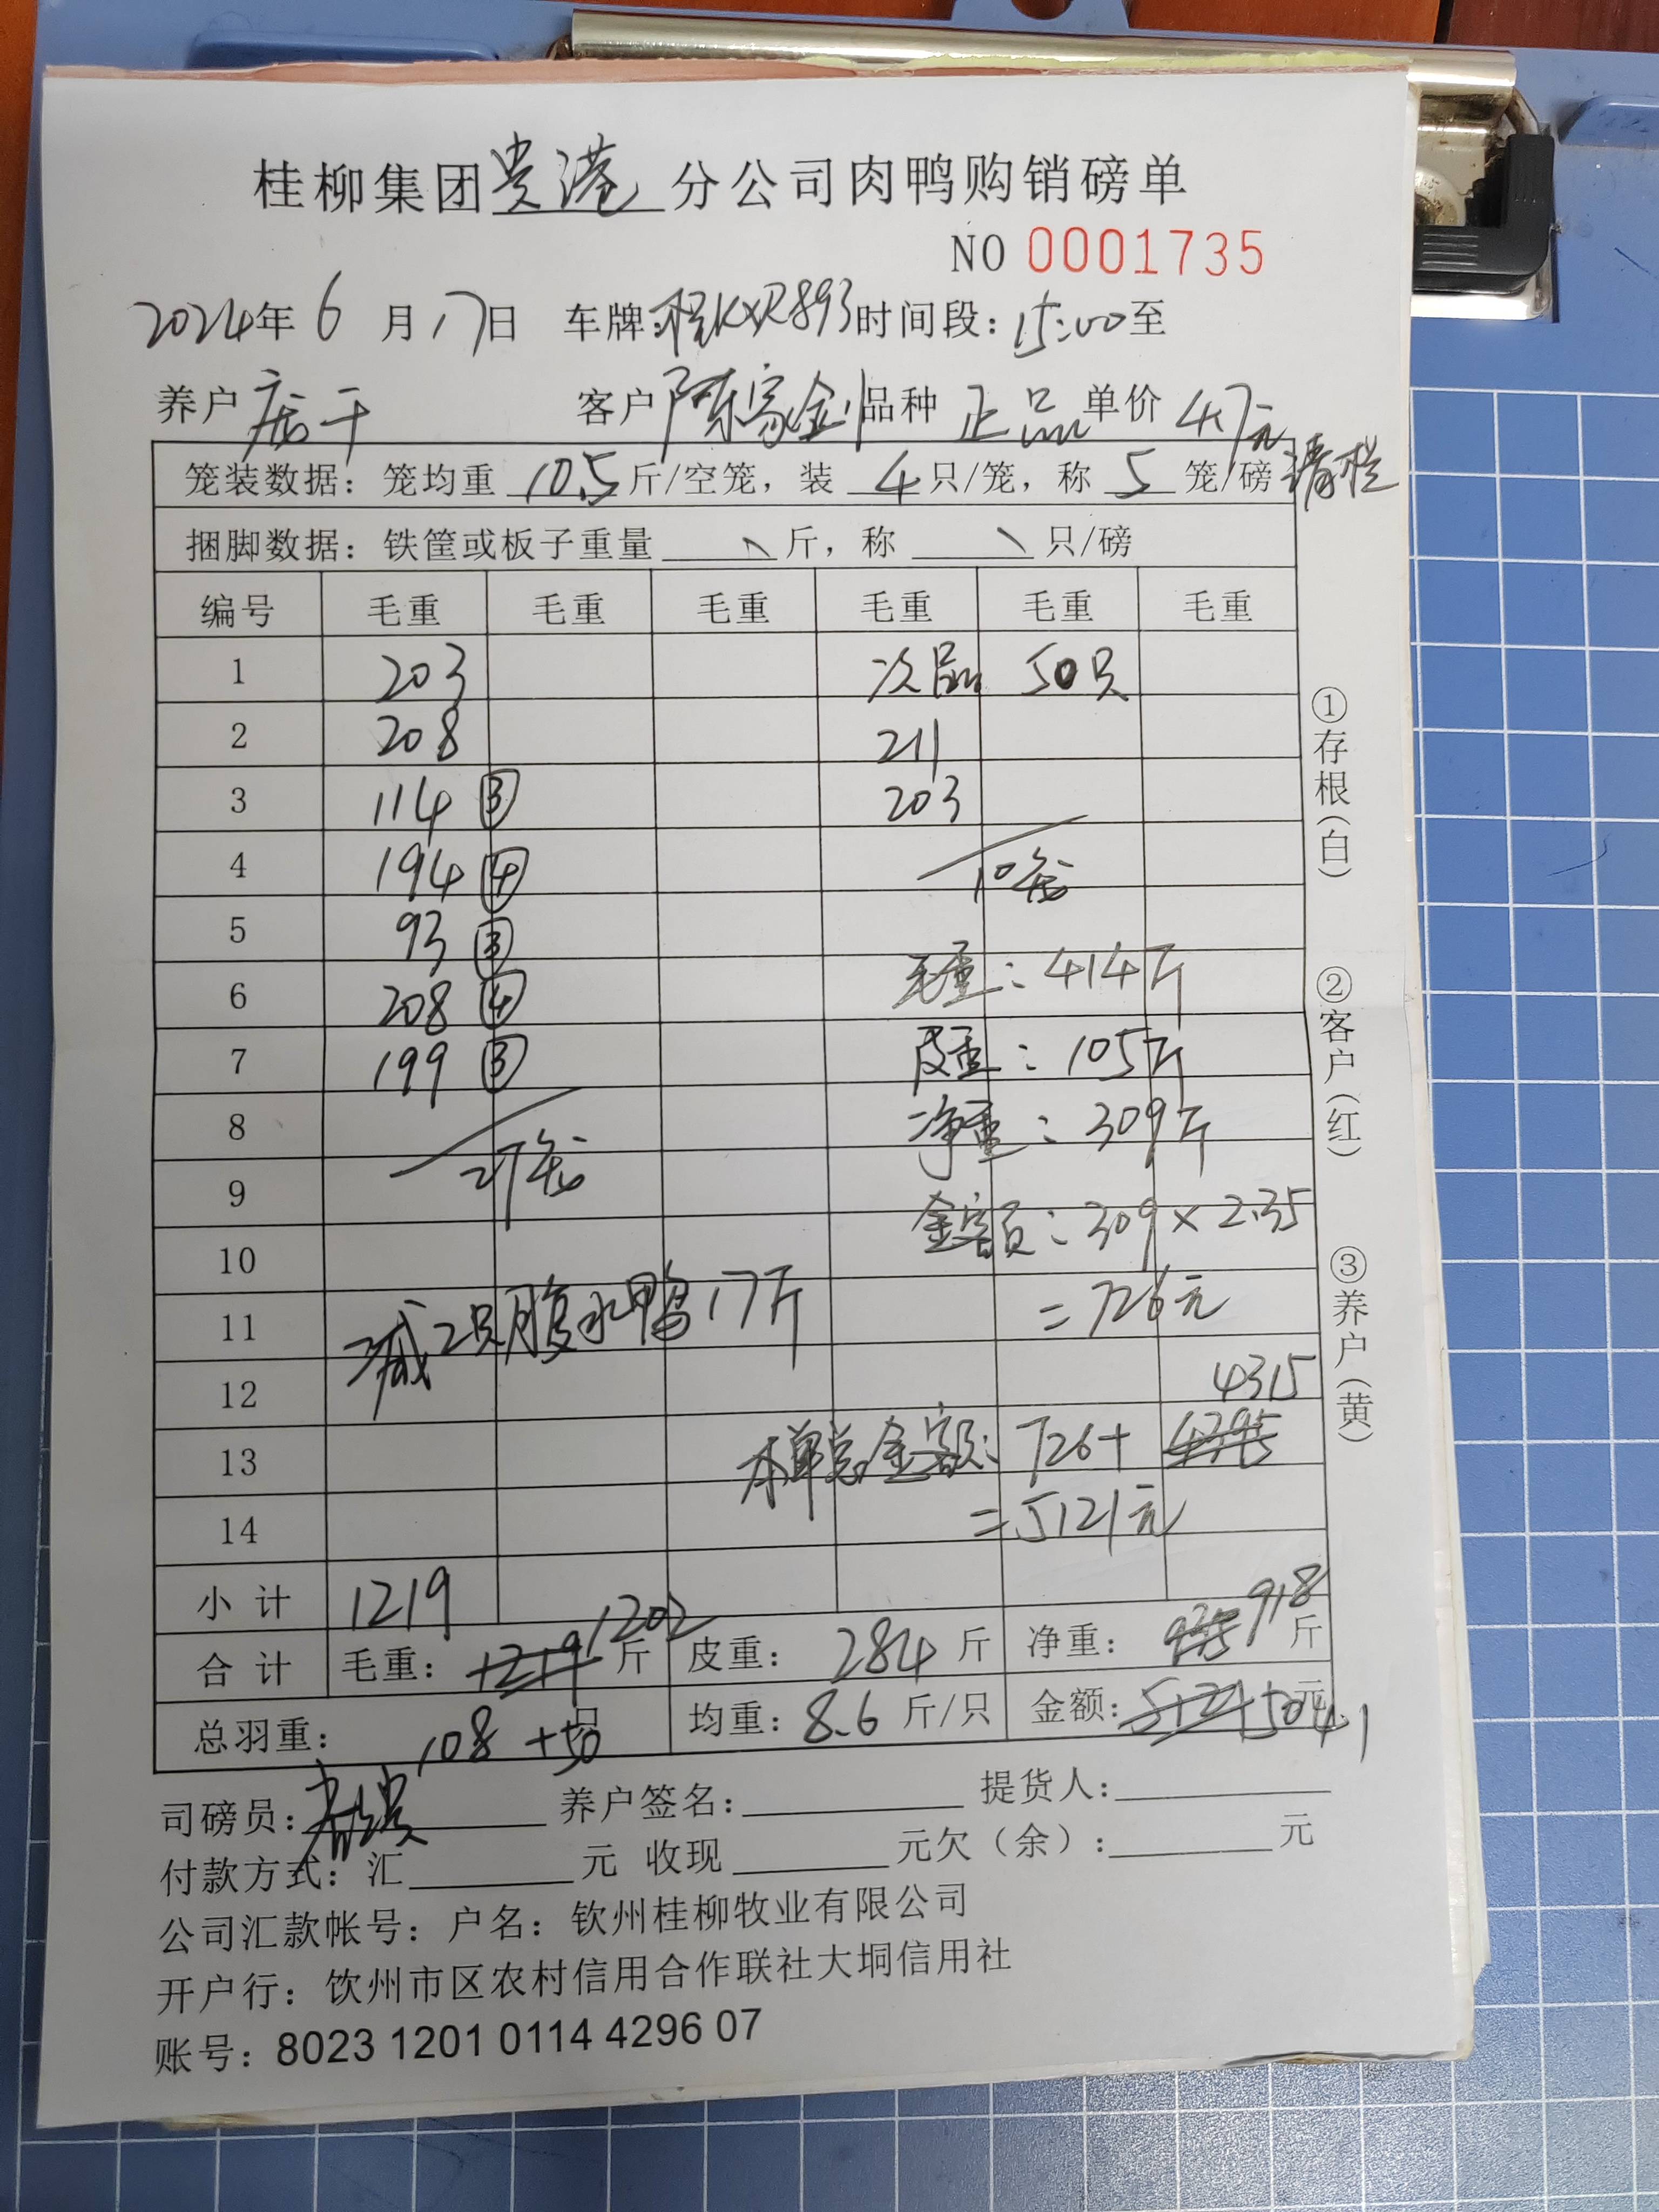 桂柳集团贵港分公司肉鸭购销磅单
NO 0001735
2024年 6 月 17日 车牌:桂KXR893时间段:15:00至
养户 客户 陈家金 品种 正品 单价 4.7元
清栏
笼装数据:笼均重 10.5 斤/空笼,装 4 只/笼,称 5 笼/磅
捆脚数据:铁筐或板子重量 \ 斤,称 \ 只/磅
编号 毛重 毛重 毛重 毛重 毛重 毛重
1 203 次品 50只
2 208 211
3 114 ③ 203
4 194 ④ 10笼
5 93 ③
6 208 ④ 毛重:414斤
7 199 ③ 皮重:105斤
8 27笼 净重:309斤
9
10 金额:309×2.35
11 减2只腹水鸭17斤 =726元
12 4315
13 本单总金额:726+ 4395
14 =5121元
小计 1219
合计 毛重:1219 1202 斤 皮重:284 斤 净重: 918 斤
总羽重:108+50 只 均重:8.6 斤/只 金额:5121 5041 元
司磅员: 养户签名: 提货人:
付款方式:汇 元 收现 元欠(余): 元
公司汇款帐号:户名:钦州桂柳牧业有限公司
开户行:饮州市区农村信用合作联社大垌信用社
账号:8023 1201 0114 4296 07
①存根(白)
②客户(红)
③养户(黄)